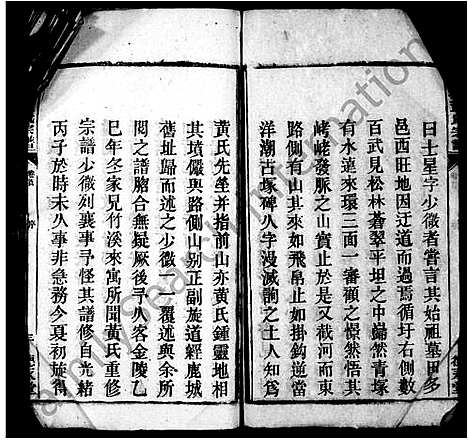 曰士星字少微者嘗言其始祖墓田多
邑西旺地因迂道而過焉循圩右側數
百武見松林蒼翠平坦之中巋然青塚
有水遶來環三面一審顧之憬然悟其
峻嶝發脈之山實止於是又截河而東
路側有山其來如飛帛忽如掛鈎逆當
洋潮古塚碑八字漫滅詢之土人知爲
黃氏先塋并指前山亦黃氏鍾靈地相
其墳儼與路側山别正副旋道經鹿城
舊址歸而述之少微一一覆述與余所
閱之譜脗合無疑厥後予久客金陵乙
巳年冬家兄竹溪來寓所聞黃氏重修
宗譜少微列襄事予怪其譜修自光緒
丙子於時未久事非急務今夏初旋得
FamilySearch International